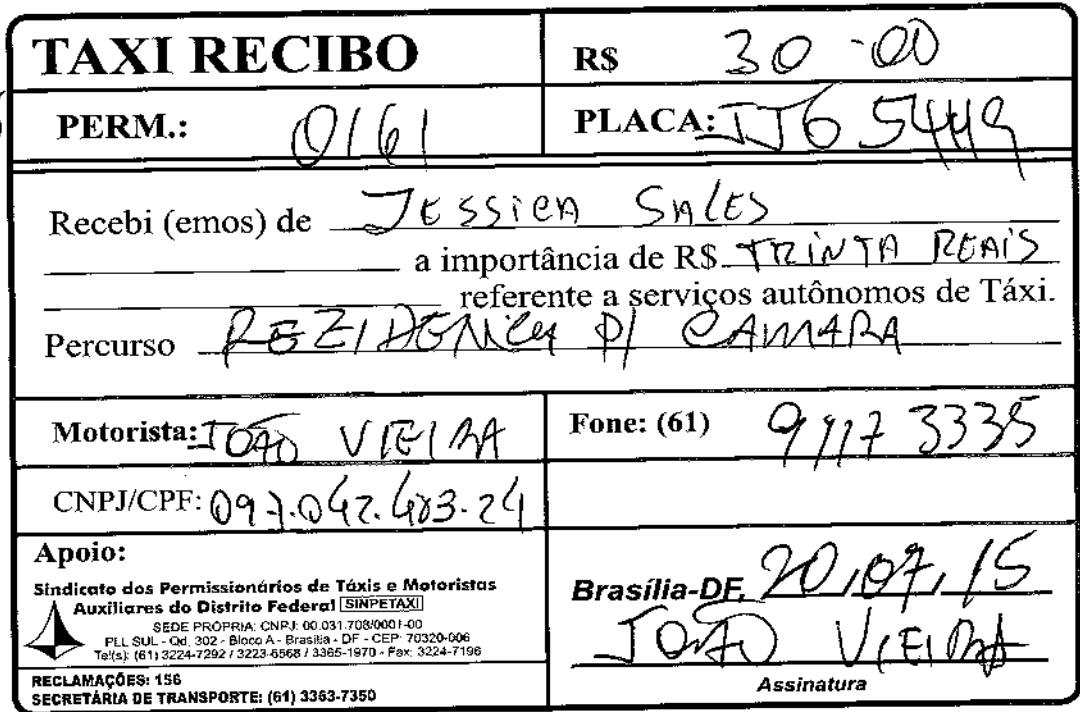 TAXI RECIBO
R$ 30-00
PERM.: 0161
PLACA: JJG 5449
Recebi (emos) de JESSICA SALES
a importância de R$ TRINTA REAIS
referente a serviços autônomos de Táxi.
Percurso REZIDENCIA P/ CAMARA
Motorista: JOÃO VIEIRA
Fone: (61) 9117 3335
CNPJ/CPF: 097.042.403-24
Apoio:
Sindicato dos Permissionários de Táxis e Motoristas
Auxiliares do Distrito Federal SINPETAXI
SEDE PRÓPRIA: CNPJ: 00.031.708/0001-00
PLL SUL - Qd. 302 - Bloco A - Brasília - DF - CEP: 70320-006
Tel(s): (61) 3224-7292 / 3223-6568 / 3365-1970 - Fax: 3224-7196
RECLAMAÇÕES: 156
SECRETÁRIA DE TRANSPORTE: (61) 3363-7350
Brasília-DF, 20/07/15
JOÃO VIEIRA
Assinatura